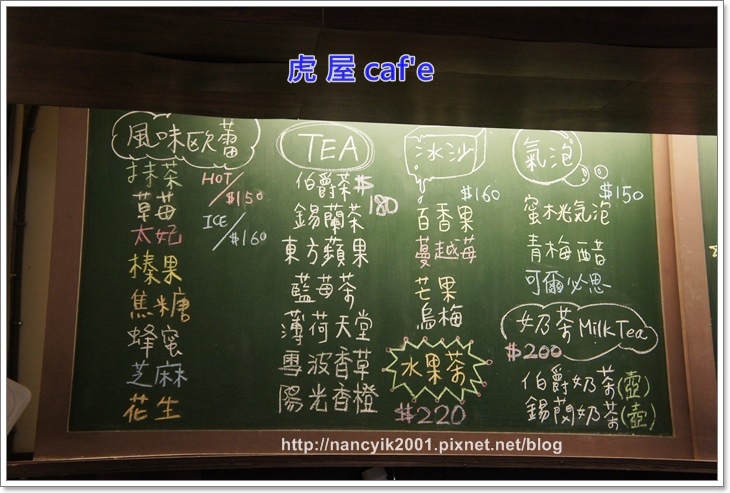 虎屋 caf'e
風味歐蕾
HOT/$150
ICE/$160
抹茶
草莓
太妃
榛果
焦糖
蜂蜜
芝麻
花生
TEA
$180
伯爵茶
錫蘭茶
東方蘋果
藍莓茶
薄荷天堂
雪波香草
陽光香橙
冰沙
$160
百香果
蔓越莓
芒果
烏梅
水果茶
$220
氣泡
$150
蜜桃氣泡
青梅醋
可爾必思
奶茶 Milk Tea
$200
伯爵奶茶(壺)
錫蘭奶茶(壺)
http://nancyik2001.pixnet.net/blog